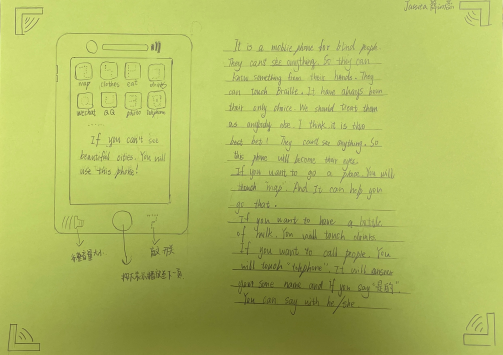 James
map clothes eat drinks
wechat QQ photo telephone
If you can't see
beautiful cities. You will
use this phone!
It is a mobile phone for blind people.
They can't see anything. So they can
know something from their hands. They
can touch Braille. It have always been
their only choice. We should treat them
as anybody else. I think it is the
best
They can't see anything. So
this phone will become their eyes.
If you want to go a place. You will
touch map. And it can help you
go that.
If you want to have a bottle
of milk. You will touch drinks.
If you want to call people. You
will touch "telephone". It will answer
some name and if you say
You can say with he/she